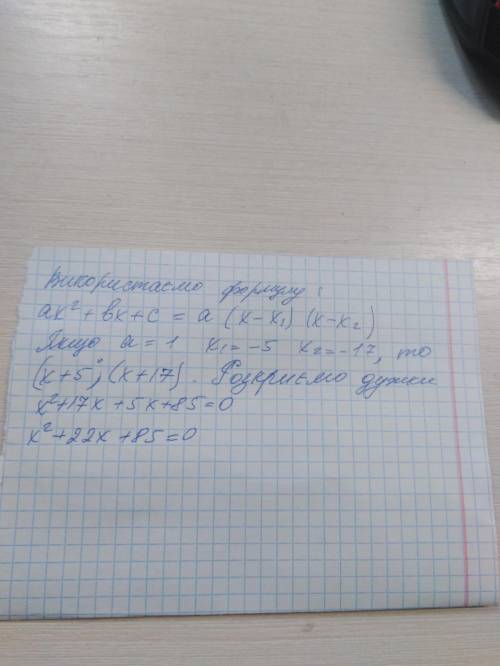 Використаємо формулу:
ax² + bx + c = a (x - x₁) (x - x₂)
Якщо a = 1 x₁ = -5 x₂ = -17, то
(x+5) (x+17). Розкриємо дужки
x² + 17x + 5x + 85 = 0
x² + 22x + 85 = 0